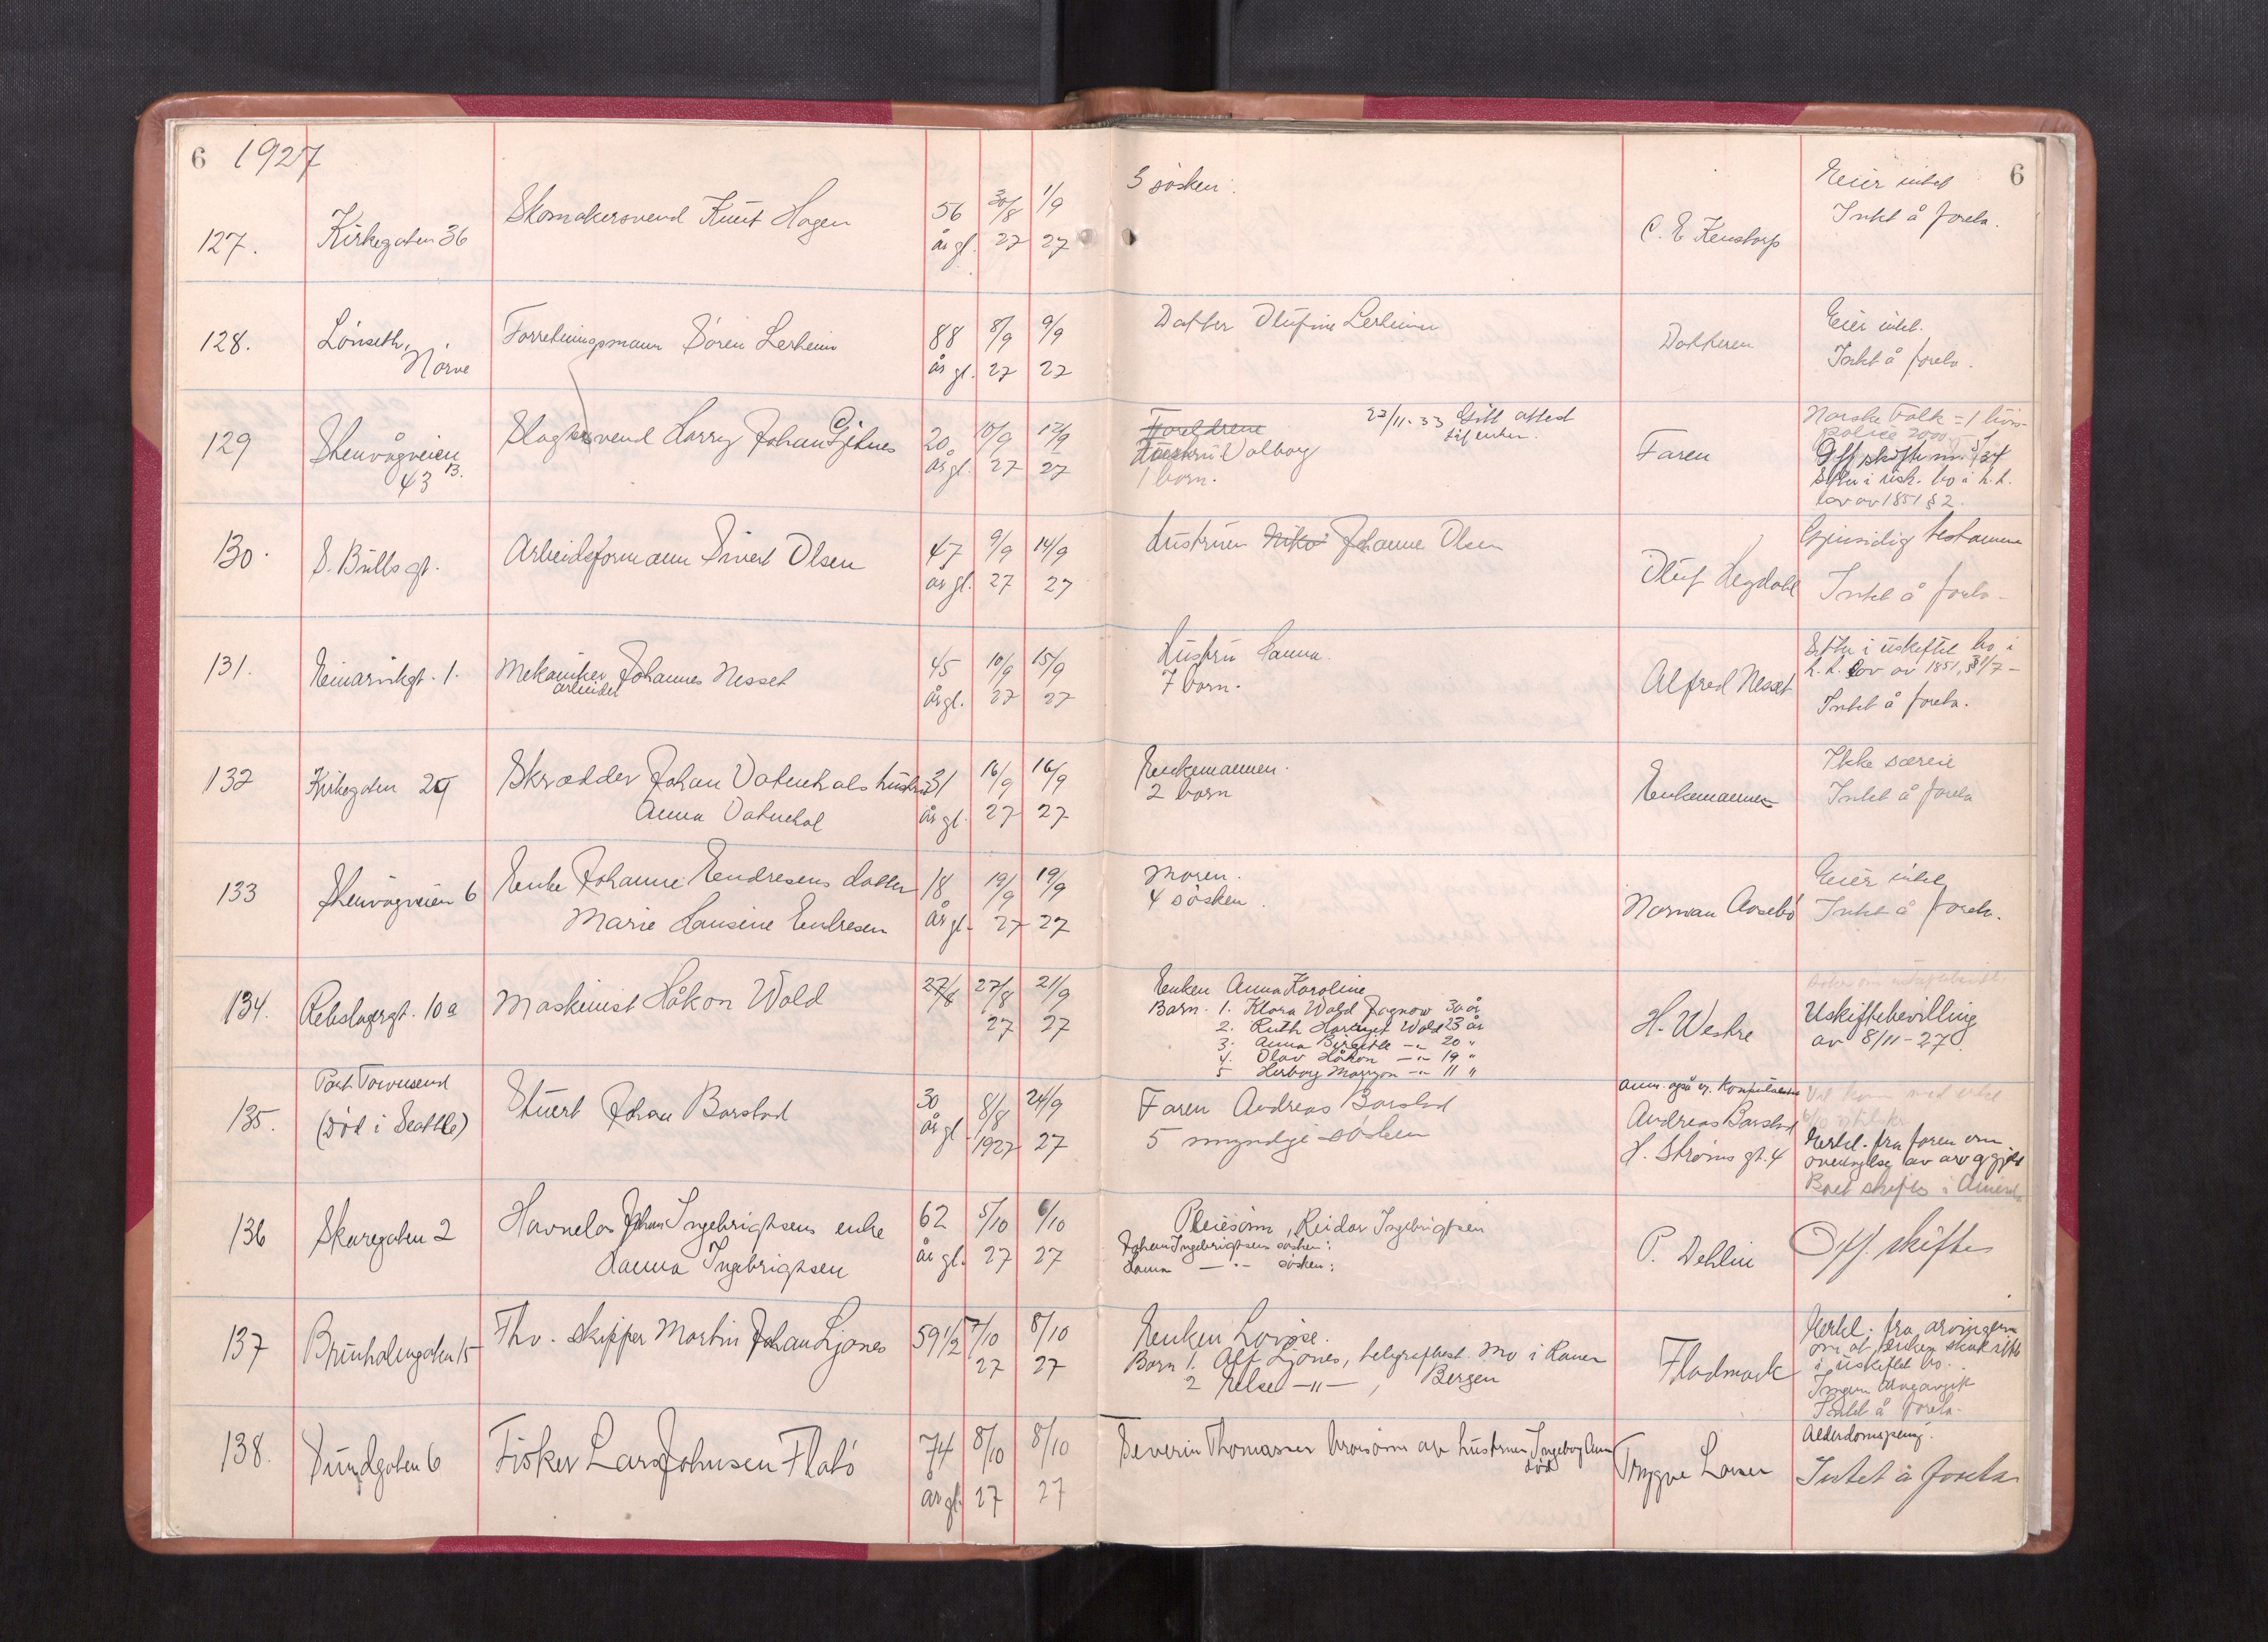 6 1927
6
127.
Kirkegaten 36
Skomakersvend Knut Hagen
56
år gl.
30/8
27
1/9
27
3 søsken.
C. E.
Eier intet
Intet å foreta.
128.
Lönseth,
Nörve
Forretningsmann Sören Lerheim
88
år gl.
8/9
27
9/9
27
Datter Olufine Lerheim
Datteren
Eier intet.
Intet å foreta.
129
Stenvågveien
43 B.
Slagtersvend Harry Johan Gjelnes
20
år gl.
10/9
27
12/9
27
Foreldrene
Hustru Valborg
1 barn.
23/11-33 Gitt attest
til enken.
Faren
Norske Folk = 1 livs-
police 2000
Off skifte nr.
Sitter i uskh. bo i h.t.
lov av 1851 § 2.
130.
S. Bulls gt.
Arbeidsformann Sivert Olsen
47
år gl.
9/9
27
14/9
27
Hustruen Johanne Olsen
Oluf Hegdahl
Gjensidig testamene
Intet å foreta
131.
Reinarvikgt. 1.
Mekaniker Johannes Nesset
arbeider
45
år gl.
10/9
27
15/9
27
Hustru Hanna.
7 barn.
Alfred Nesset
Sitter i uskiftet bo i
h.t. lov av 1851, § 1/7 -
Intet å foreta.
132
Kirkegaten 29
Skrædder Johan Vatnehols hustru
Anna Vatnehol
31
år gl.
16/9
27
16/9
27
Enkemannen.
2 barn
Enkemannen
Ikke særeie
Intet å foreta
133
Stenvågveien 6
Enke Johanne Endresens datter
Marie Hansine Endresen
18
år gl.
19/9
27
19/9
27
Moren.
4 søsken.
Norman Aasebö
Eier intet
Intet å foreta.
134.
Rebslagergt. 10a
Maskinist Håkon Wold
27/8
27/8
27
21/9
27
Enken Anna Karoline
Barn. 1. Klara Wold 30 år
2. Ruth Margit Wold 23 år
3. Anna Birgitte -"- 20 "
4. Olav Håkon -"- 19 "
5 Herborg Marion -"- 11 "
H. Westre
Uskiftebevilling
av 8/11-27.
135.
Port Townsend
(död i Seattle)
Stuert Johan Barstad
30
år gl.
8/8
1927
24/9
27
Faren Andreas Barstad
5 myndige søsken
anm. også
Andreas Barstad
H. Ströms gt. 4
Erkl. fra faren om
overtagelse av arv og gjeld
Boet skiftes i Amerika
136
Skaregaten 2
Havnelos Johan Ingebrigtsens enke
Hanna Ingebrigtsen
62
år gl.
5/10
27
6/10
27
Pleiesönn, Reidar Ingebrigtsen
Johan Ingebrigtsens søsken:
Hanna -"- søsken:
P. Dehlin
Off. skifte
137
Brunholmgaten 15
Fhv. skipper Martin Johan Ljones
59 1/2
7/10
27
8/10
27
Enken Lovise.
Barn 1. Alf Ljones, telegrafbest. Mo i Ranen
2 Else -"-, Bergen
Fladmark
Erkl. fra arvingene
om at enken skal sitte
i uskiftet bo.
Ingen arveavgift
Intet å foreta.
138.
Sundgaten 6
Fisker Lars Johnsen Flatö
74
år gl.
8/10
27
8/10
27
Severin Thomassen brorsönn av hustruen Ingeborg Anna
död
Trygve Larsen
Alderdomspeng.
Intet å foreta